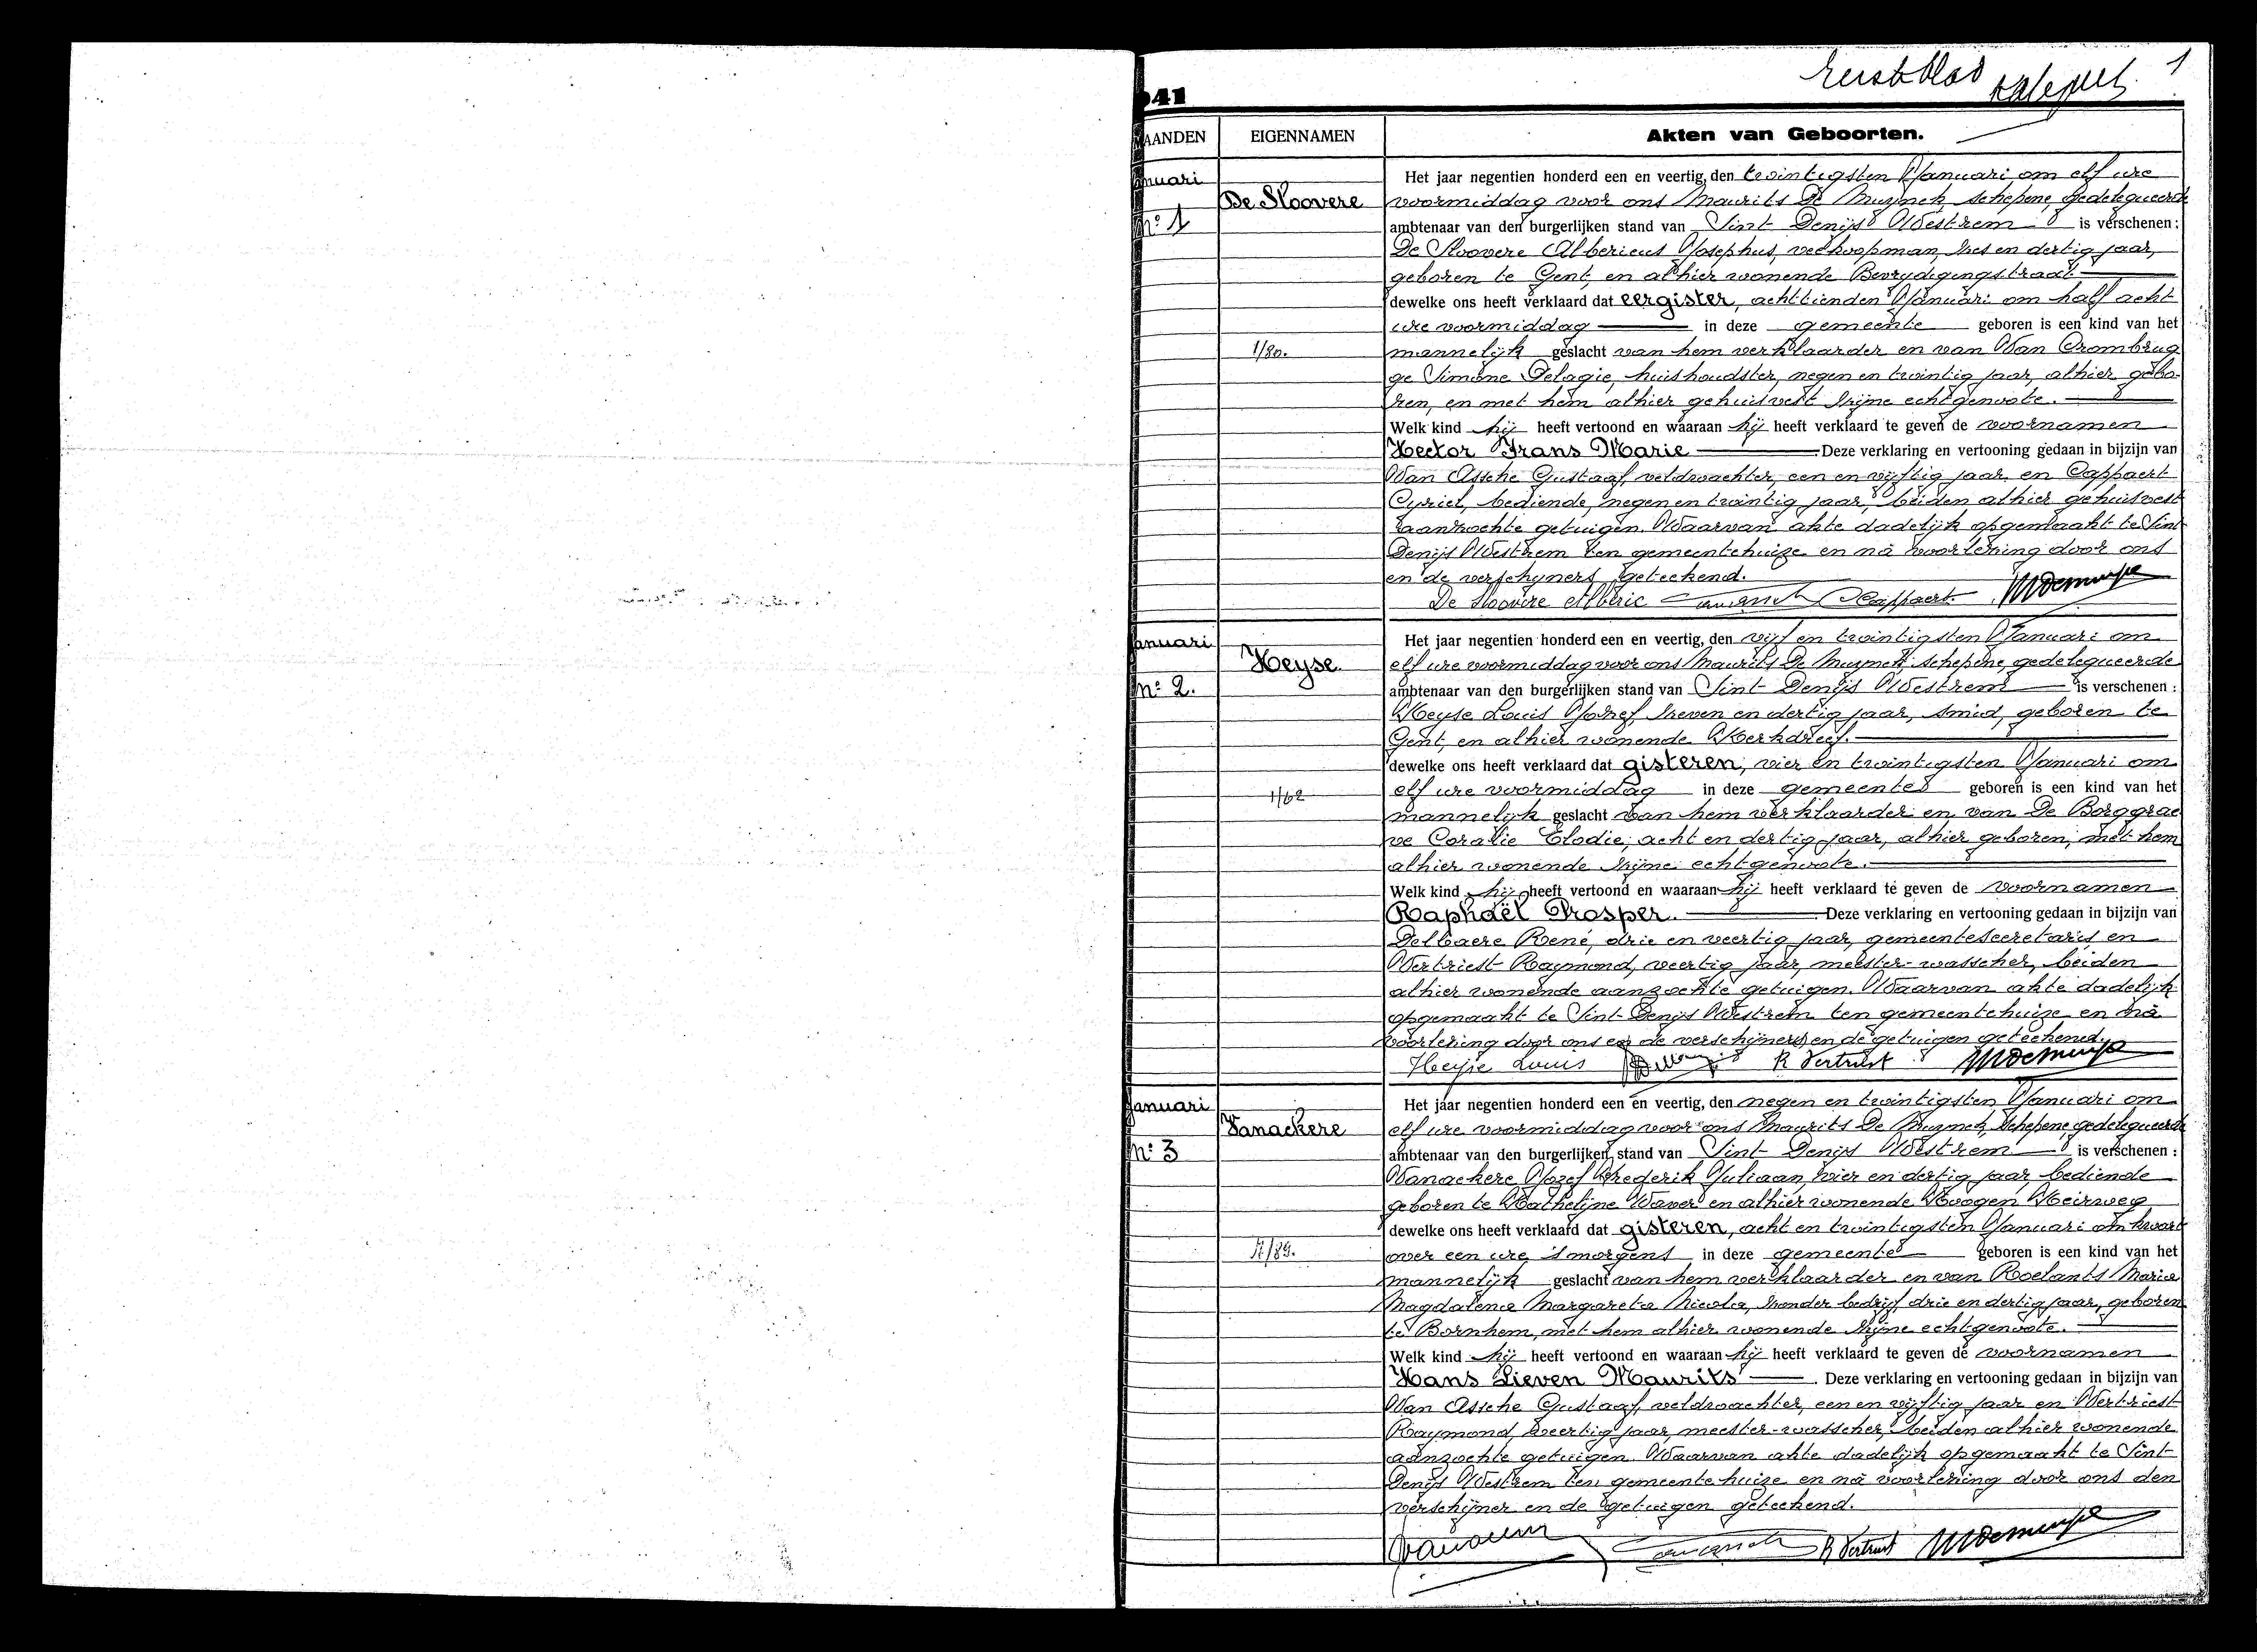 Eerste blad 1
41
MAANDEN EIGENNAMEN Akten van Geboorten.
Januari
De Sloovere
Nº 1
1/80.
Het jaar negentien honderd een en veertig, den twintigsten Januari om elf ure
voormiddag voor ons Maurits De Muynck, schepene, gedelegueerde
ambtenaar van den burgerlijken stand van Sint Denijs Westrem is verschenen:
De Sloovere Albericus Josephus, veekoopman, zes en dertig jaar,
geboren te Gent, en alhier wonende Bevrydigingstraat
dewelke ons heeft verklaard dat eergister, achttienden Januari om half acht
ure voormiddag in deze gemeente geboren is een kind van het
mannelijk geslacht van hem verklaarder en van Van Crombrug
ge Simone Pelagie, huishoudster, negen en twintig jaar, alhier gebo-
ren, en met hem alhier gehuisvest zijne echtgenoote.
Welk kind hij heeft vertoond en waaraan hij heeft verklaard te geven de voornamen
Hector Frans Marie Deze verklaring en vertooning gedaan in bijzijn van
Van Assche Gustaaf, veldwachter, een en vijftig jaar, en Cappaert
Cyriel, bediende, negen en twintig jaar, beiden alhier gehuisvest
aanzochte getuigen. Waarvan akte dadelijk opgemaakt te Sint
Denijs Westrem ten gemeentehuize en nà voorlezing door ons
en de verschyners geteekend.
De Sloovere Alberic Vanassche Cappaert. MDemuynck
Januari
Heyse.
Nº 2.
1/62
Het jaar negentien honderd een en veertig, den vijf en twintigsten Januari om
elf ure voormiddag voor ons Maurits De Muynck, schepene, gedelegueerde
ambtenaar van den burgerlijken stand van Sint Denijs Westrem is verschenen:
Heyse Louis Jozef, zeven en dertig jaar, smid, geboren te
Gent, en alhier wonende Kerkdreef.
dewelke ons heeft verklaard dat gisteren, vier en twintigsten Januari om
elf ure voormiddag in deze gemeente geboren is een kind van het
mannelijk geslacht van hem verklaarder en van De Borggrae
ve Coralie Elodie, acht en dertig jaar, alhier geboren, met hem
alhier wonende zijne echtgenoote.
Welk kind hij heeft vertoond en waaraan hij heeft verklaard te geven de voornamen
Raphaël Prosper. Deze verklaring en vertooning gedaan in bijzijn van
Delbaere René, drie en veertig jaar, gemeentesecretaris en
Vertriest Raymond, veertig jaar, meester-wasscher, beiden
alhier wonende aanzochte getuigen. Waarvan akte dadelijk
opgemaakt te Sint Denijs Westrem ten gemeentehuize en nà
voorlezing door ons en de verschijners en de getuigen geteekend.
Heyse Louis R Vertriest MDemuynck
Januari
Vanackere
Nº 3
Het jaar negentien honderd een en veertig, den negen en twintigsten Januari om
elf ure voormiddag voor ons Maurits De Muynck, Schepene, gedelegueerde
ambtenaar van den burgerlijken stand van Sint Denijs Westrem is verschenen:
Vanackere Jozef Frederik Juliaan, vier en dertig jaar, bediende
geboren te Kathelijne Waver en alhier wonende Hoogen Heirweg
dewelke ons heeft verklaard dat gisteren, acht en twintigsten Januari om kwart
over een ure, 's morgens in deze gemeente geboren is een kind van het
mannelijk geslacht van hem verklaarder en van Roelants Maria
Magdalena Margareta Nicola, zonder bedrijf, drie en dertig jaar, geboren
te Bornhem, met hem alhier wonende zijne echtgenoote.
Welk kind hij heeft vertoond en waaraan hij heeft verklaard te geven de voornamen
Hans Lieven Maurits. Deze verklaring en vertooning gedaan in bijzijn van
Van Assche Gustaaf, veldwachter, een en vijftig jaar en Vertriest
Raymond, veertig jaar, meester-wasscher, beiden alhier wonende
aanzochte getuigen. Waarvan akte dadelijk opgemaakt te Sint
Denijs Westrem ten gemeentehuize en nà voorlezing door ons den
verschijner en de getuigen geteekend.
Vanassche R Vertriest MDemuynck